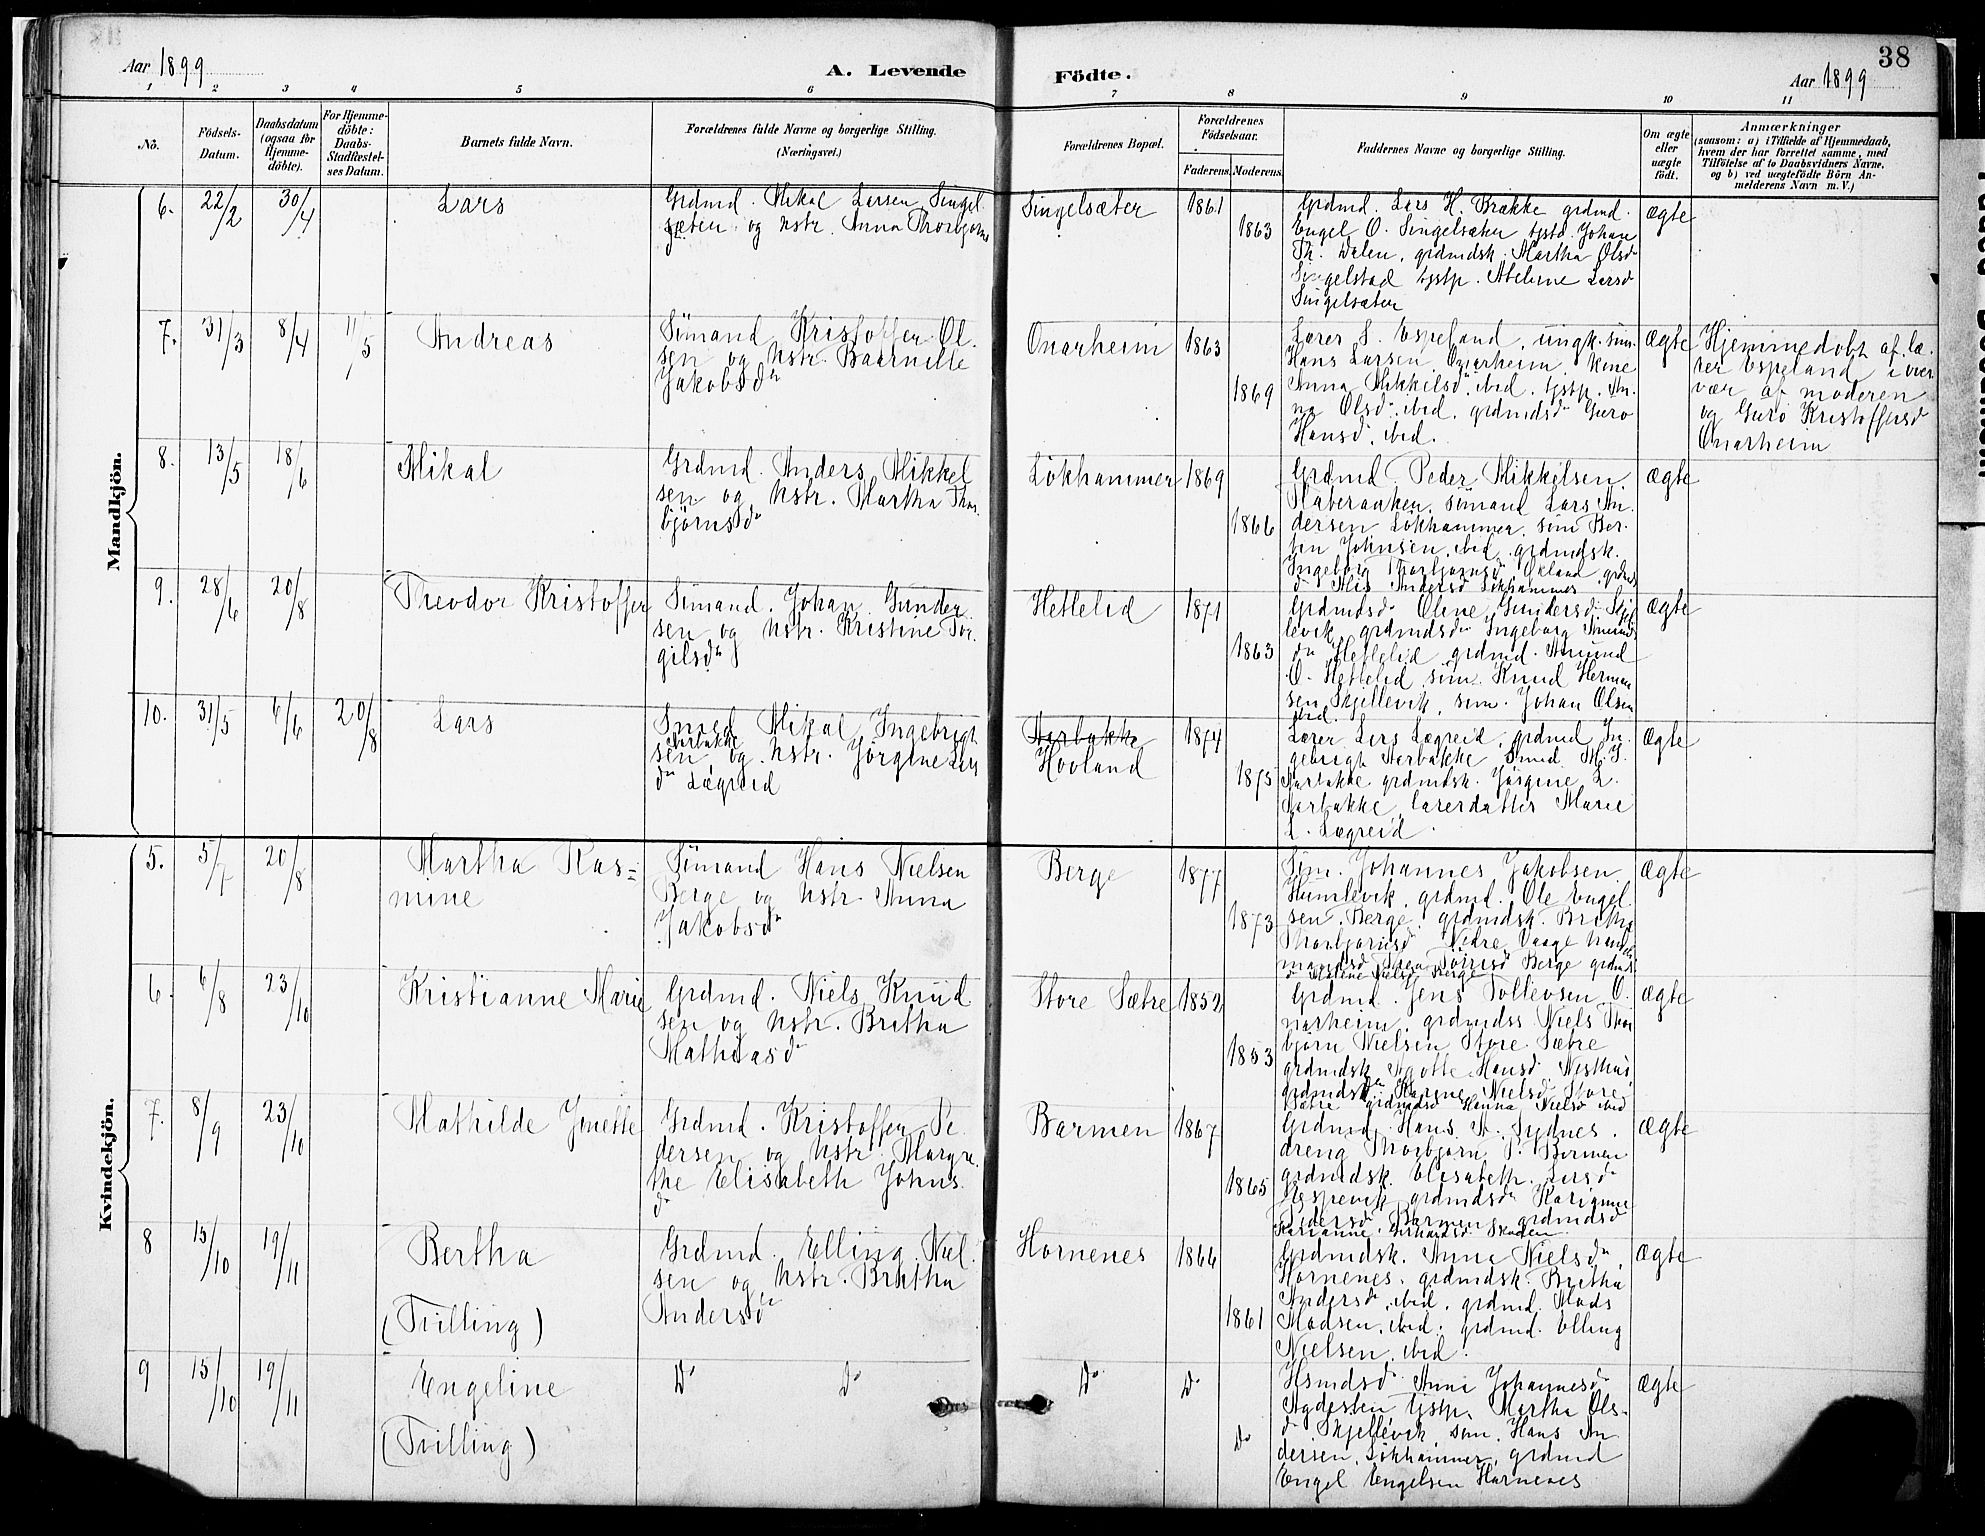 38
Aar 1899
A. Levende
Födte.
Aar 1899
1 2 3 4 5 6 7 8 9 10 11
No.
Födsels-
Datum.
Daabsdatum
(ogsaa for
Hjemme-
döbte).
For Hjemme-
döbte:
Daabs-
Stadfæstel-
ses Datum.
Barnets fulde Navn.
Forældrenes fulde Navne og borgerlige Stilling.
(Næringsvei.)
Forældrenes Bopæl.
Forældrenes
Födselsaar.
Faderens. Moderens.
Faddernes Navne og borgerlige Stilling.
Om ægte
eller
uægte
födt.
Anmærkninger
(saasom: a) i Tilfælde af Hjemmedaab,
hvem der har forrettet samme, med
Tilföielse af to Daabsvidners Navne,
og b) ved uægtefödte Börn An-
melderens Navn m. V.)
Mandkjön.
6. 22/2 30/4
Lars
Grdmd. Mikal Larsen Singel
sæter og hstr. Anna Thorbjørns
Singelsæter
1861
1863
Grdmd. Lars H. Brække grdmd.
Engel O. Singelsæter tjstd. Johan
Th. Dalen, grdmdsk. Martha Olsdr
Singelstad tjstp. Larsdr
Singelsæter
ægte
7. 31/3 8/4 11/5
Andreas
Sömand Kristoffer Ol-
sen og hstr.
Jakobsdr
Onarheim
1863
1869
Lærer S. Espeland, ungk. söm.
Hans Larsen Onarheim, kone
Anna Mikkelsdr ibid. tjstp. An-
na Olsdr ibid. grdmdsdr Guro
Hansdr. ibid.
ægte
Hjemmedöbt af læ-
rer Espeland i over
vær af moderen
og Guro Kristoffersdr
Onarheim
8. 13/5 18/6
Mikal
Grdmd. Anders Mikkel
sen og hstr. Martha Thor-
björnsdr
Lökhammer
1869
1866
Grdmd. Peder Mikkelsen
sömand Lars An-
dersen Lökhammer, söm Ber-
Johnsen, ibid. grdmdsk.
Ingeborg Thorbjörnsdr Økland, grdmds
dr Andersdr Lökhammer
ægte
9. 28/6 20/8
Theodor Kristoffer
Sömand. Johan Gunder
sen og hstr. Kristine Tor
gilsdr
Hettelid
1871
1863
Grdmdsdr Oline Gundersdr Skjel
levik, grdmdsdr Ingeborg Amunds
dr Hettelid grdmd. Amund
O. Hettelid söm. Knud Herman
sen Skjellevik, söm. Johan Olsen
ibid.
ægte
10. 31/5 6/6 20/8
Lars
Smed Mikal Ingebrigt
Aarbakke
sen og hstr. Jörgine Lars
dr Lægreid
Aarbakke
Hovland
1874
1875
Lærer Lars Lægreid, grdmd In-
gebrigt Aarbakke Smed M. I.
Aarbakke grdmdsk. Jörgine L.
Aarbakke, lærerdatter Marie
L. Lægreid.
ægte
Kvindekjön.
5. 5/7 20/8
Martha Ras-
mine
Sömand Hans Nielsen
Berge og hstr. Anna
Jakobsdr
Berge
1877
1873
Söm. Johannes Jakobsen
Humlevik, grdmd. Ole Engel
sen, Berge, grdmdsk. Britha
Thorbjörnsdr Nedre Vaage handels
Berge grdmds
dr Malene Nielsdr Berge
ægte
6. 6/8 23/10
Kristianne Marie
Grdmd. Niels Knud
sen og hstr. Britha
Mathiasdr
Store Sætre
1852
1853
Grdmd. Jens Tollevsen O-
narheim, grdmdss. Niels Thor
björn Nielsen Store Sætre
grdmdsk. Agotte Hansdr Nesthus
grdmdsdr Karene Nielsdr Store
Sætre grdmdsdr Hanna Nielsdr ibid
ægte
7. 8/9 23/10
Mathilde Jonette
Grdmd. Kristoffer Pe
dersen og hstr. Margre
the Elisabeth Johns
dr
Barmen
1867
1865
Grdmd. Hans A. Sydnes.
dreng Thorbjörn P. Barmen
grdmdsk. Elisabeth Larsdr
grdmdsdr Karianne
Pedersdr Barmen, grdmdsdr
Karianne
ægte
8 15/10 19/11
Bertha
(Tvilling)
Grdmd. Elling Niel
sen og hstr. Britha
Andersdr
Hornenes
1866
1861
Grdmdsk. Anna Nielsdr
Hornenes. grdmdsk. Britha
Andersdr ibid, grdmd. Mads
Madsen, ibid. grdmd. Elling
Nielsen, ibid.
ægte
9 15/10 19/11
Engeline
(Tvilling)
Do Do
Do
Do
Do
Hsmdsdr Anna Johannesdr
Agdesten tjstp. Martha Ols-
dr Skjellevik, söm. Hans An
dersen, Lökhammer, grdmd
Engel Engelsen Hornenes
ægte